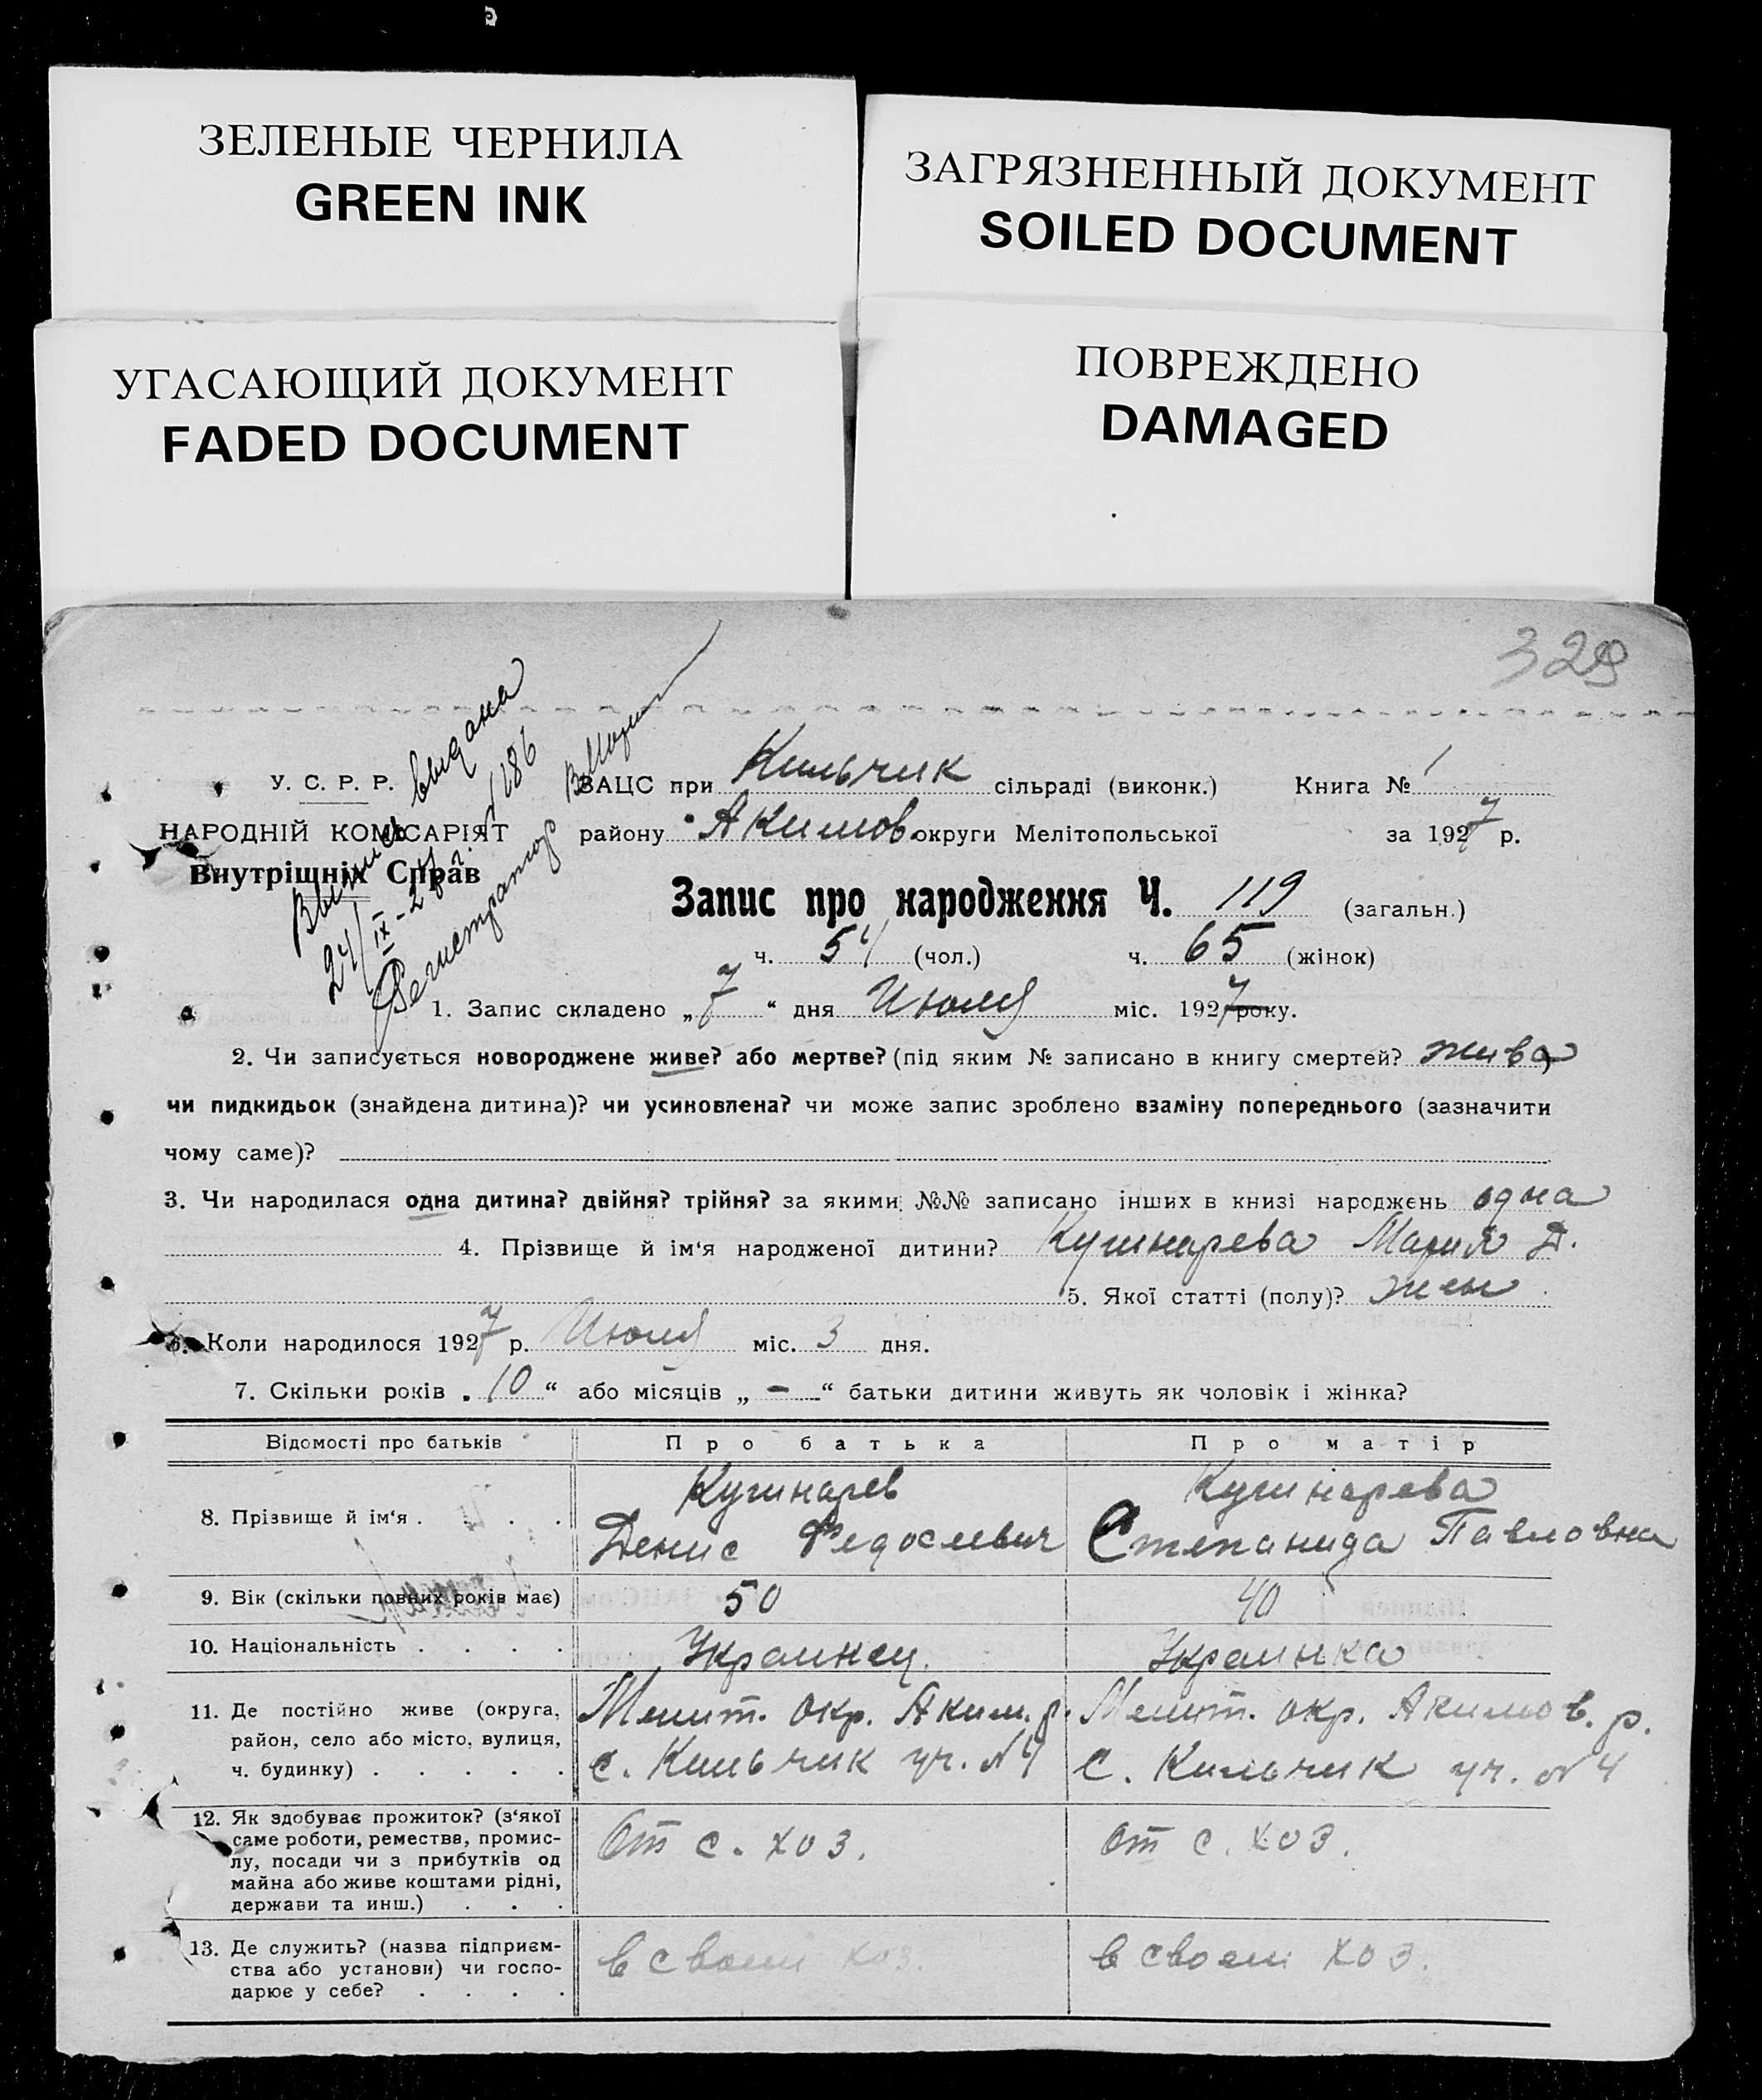 ЗЕЛЕНЫЕ ЧЕРНИЛА
GREEN INK
ЗАГРЯЗНЕННЫЙ ДОКУМЕНТ
SOILED DOCUMENT
УГАСАЮЩИЙ ДОКУМЕНТ
FADED DOCUMENT
ПОВРЕЖДЕНО
DAMAGED
329
Выпись выдана
24/IX-27 г. N 186
Регистратор
У. С. Р. Р.
НАРОДНІЙ КОМІСАРІЯТ
Внутрішніх Справ
ЗАЦС при Кильчик сільраді (виконк.) Книга № 1
району Акимов. округи Мелітопольської за 1927 р.
Запис про народження Ч. 119 (загальн.)
ч. 54 (чол.) ч. 65 (жінок)
1. Запис складено „7“ дня Июля міс. 1927 року.
2. Чи записується новороджене живе? або мертве? (під яким № записано в книгу смертей? жива,
чи пидкидьок (знайдена дитина)? чи усиновлена? чи може запис зроблено взаміну попереднього (зазначити
чому саме)?
3. Чи народилася одна дитина? двійня? трійня? за якими №№ записано інших в книзі народжень одна
4. Прізвище й ім‘я народженої дитини? Кушнарева Мария Д.
5. Якої статті (полу)? жен
6. Коли народилося 1927 р. Июля міс. 3 дня.
7. Скільки років „10“ або місяців „-“ батьки дитини живуть як чоловік і жінка?
Відомості про батьків Про батька Про матір
8. Прізвище й ім‘я . . . .
Кушнарев
Денис Федосеевич
Кушнарева
Степанида Павловна
9. Вік (скільки повних років має) 50 40
10. Національність . . . . Украинец. Украинка
11. Де постійно живе (округа,
район, село або місто, вулиця,
ч. будинку) . . . . .
Мелит. окр. Аким. р.
с. Кильчик уч. N4
Мелит. окр. Акимов. р.
с. Кильчик уч. N4
12. Як здобуває прожиток? (з‘якої
саме роботи, ремества, промис-
лу, посади чи з прибутків од
майна або живе коштами рідні,
держави та инш.) . . .
От с. хоз.
от с. хоз.
13. Де служить? (назва підприєм-
ства або установи) чи госпо-
дарює у себе? . . . .
в своем хоз.
в своем хоз.